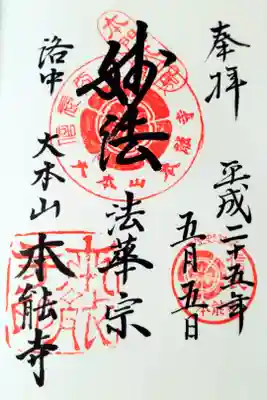 奉拝
平成二十五年
五月五日
妙法
法華宗
洛中
大本山
本能寺